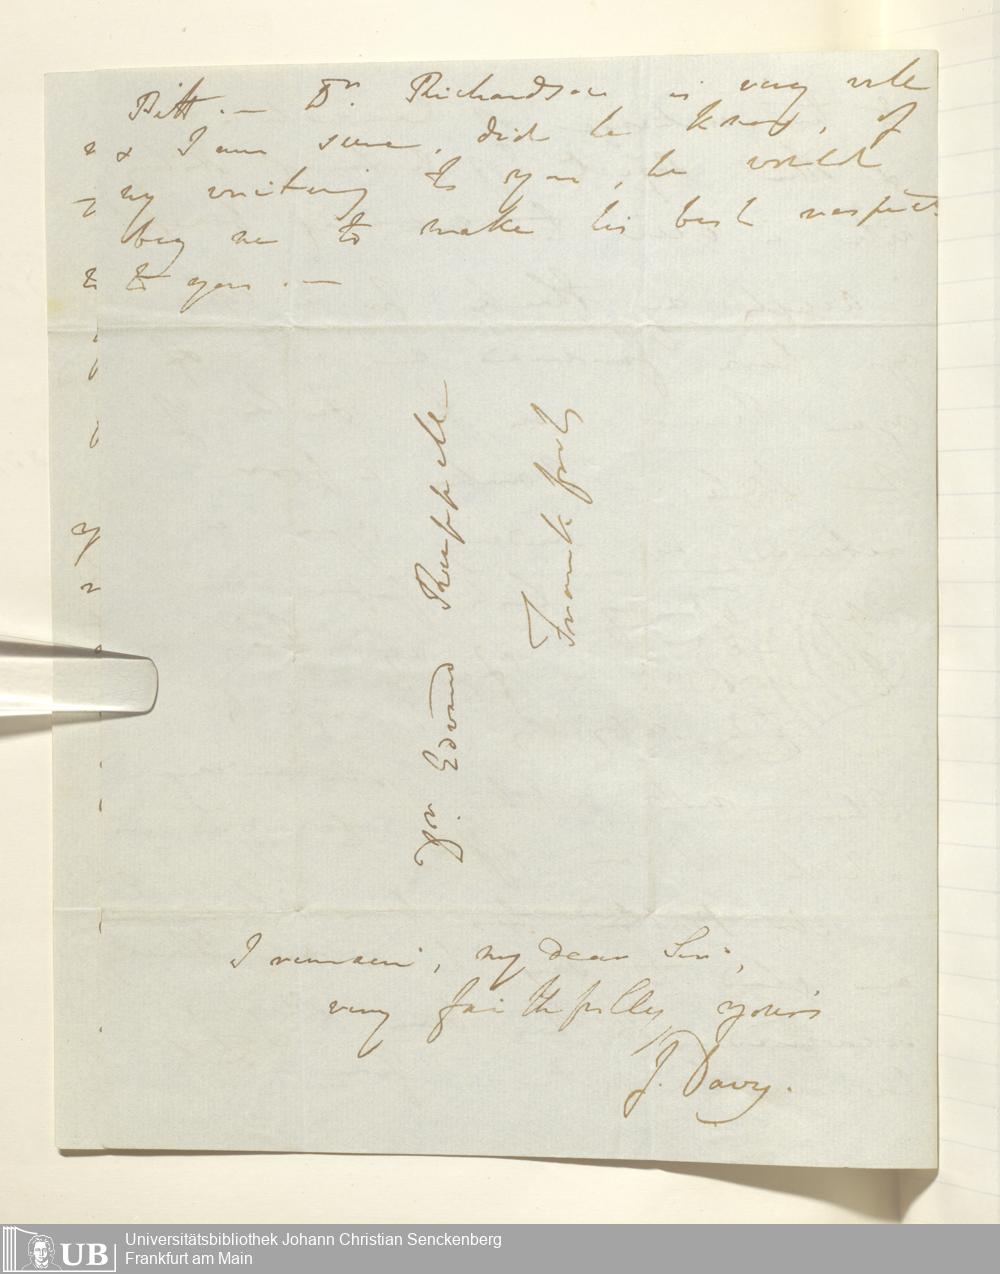 Pitt. — Dr. Richardson is very well
& I am sure, did he know, of
my writing to you, he would
beg me to make his best respects
to you. —
Dr. Edward Rüppell
Frankfort
I remain, my dear Sir,
very faithfully yours
J. Davy.
UB
Universitätsbibliothek Johann Christian Senckenberg
Frankfurt am Main